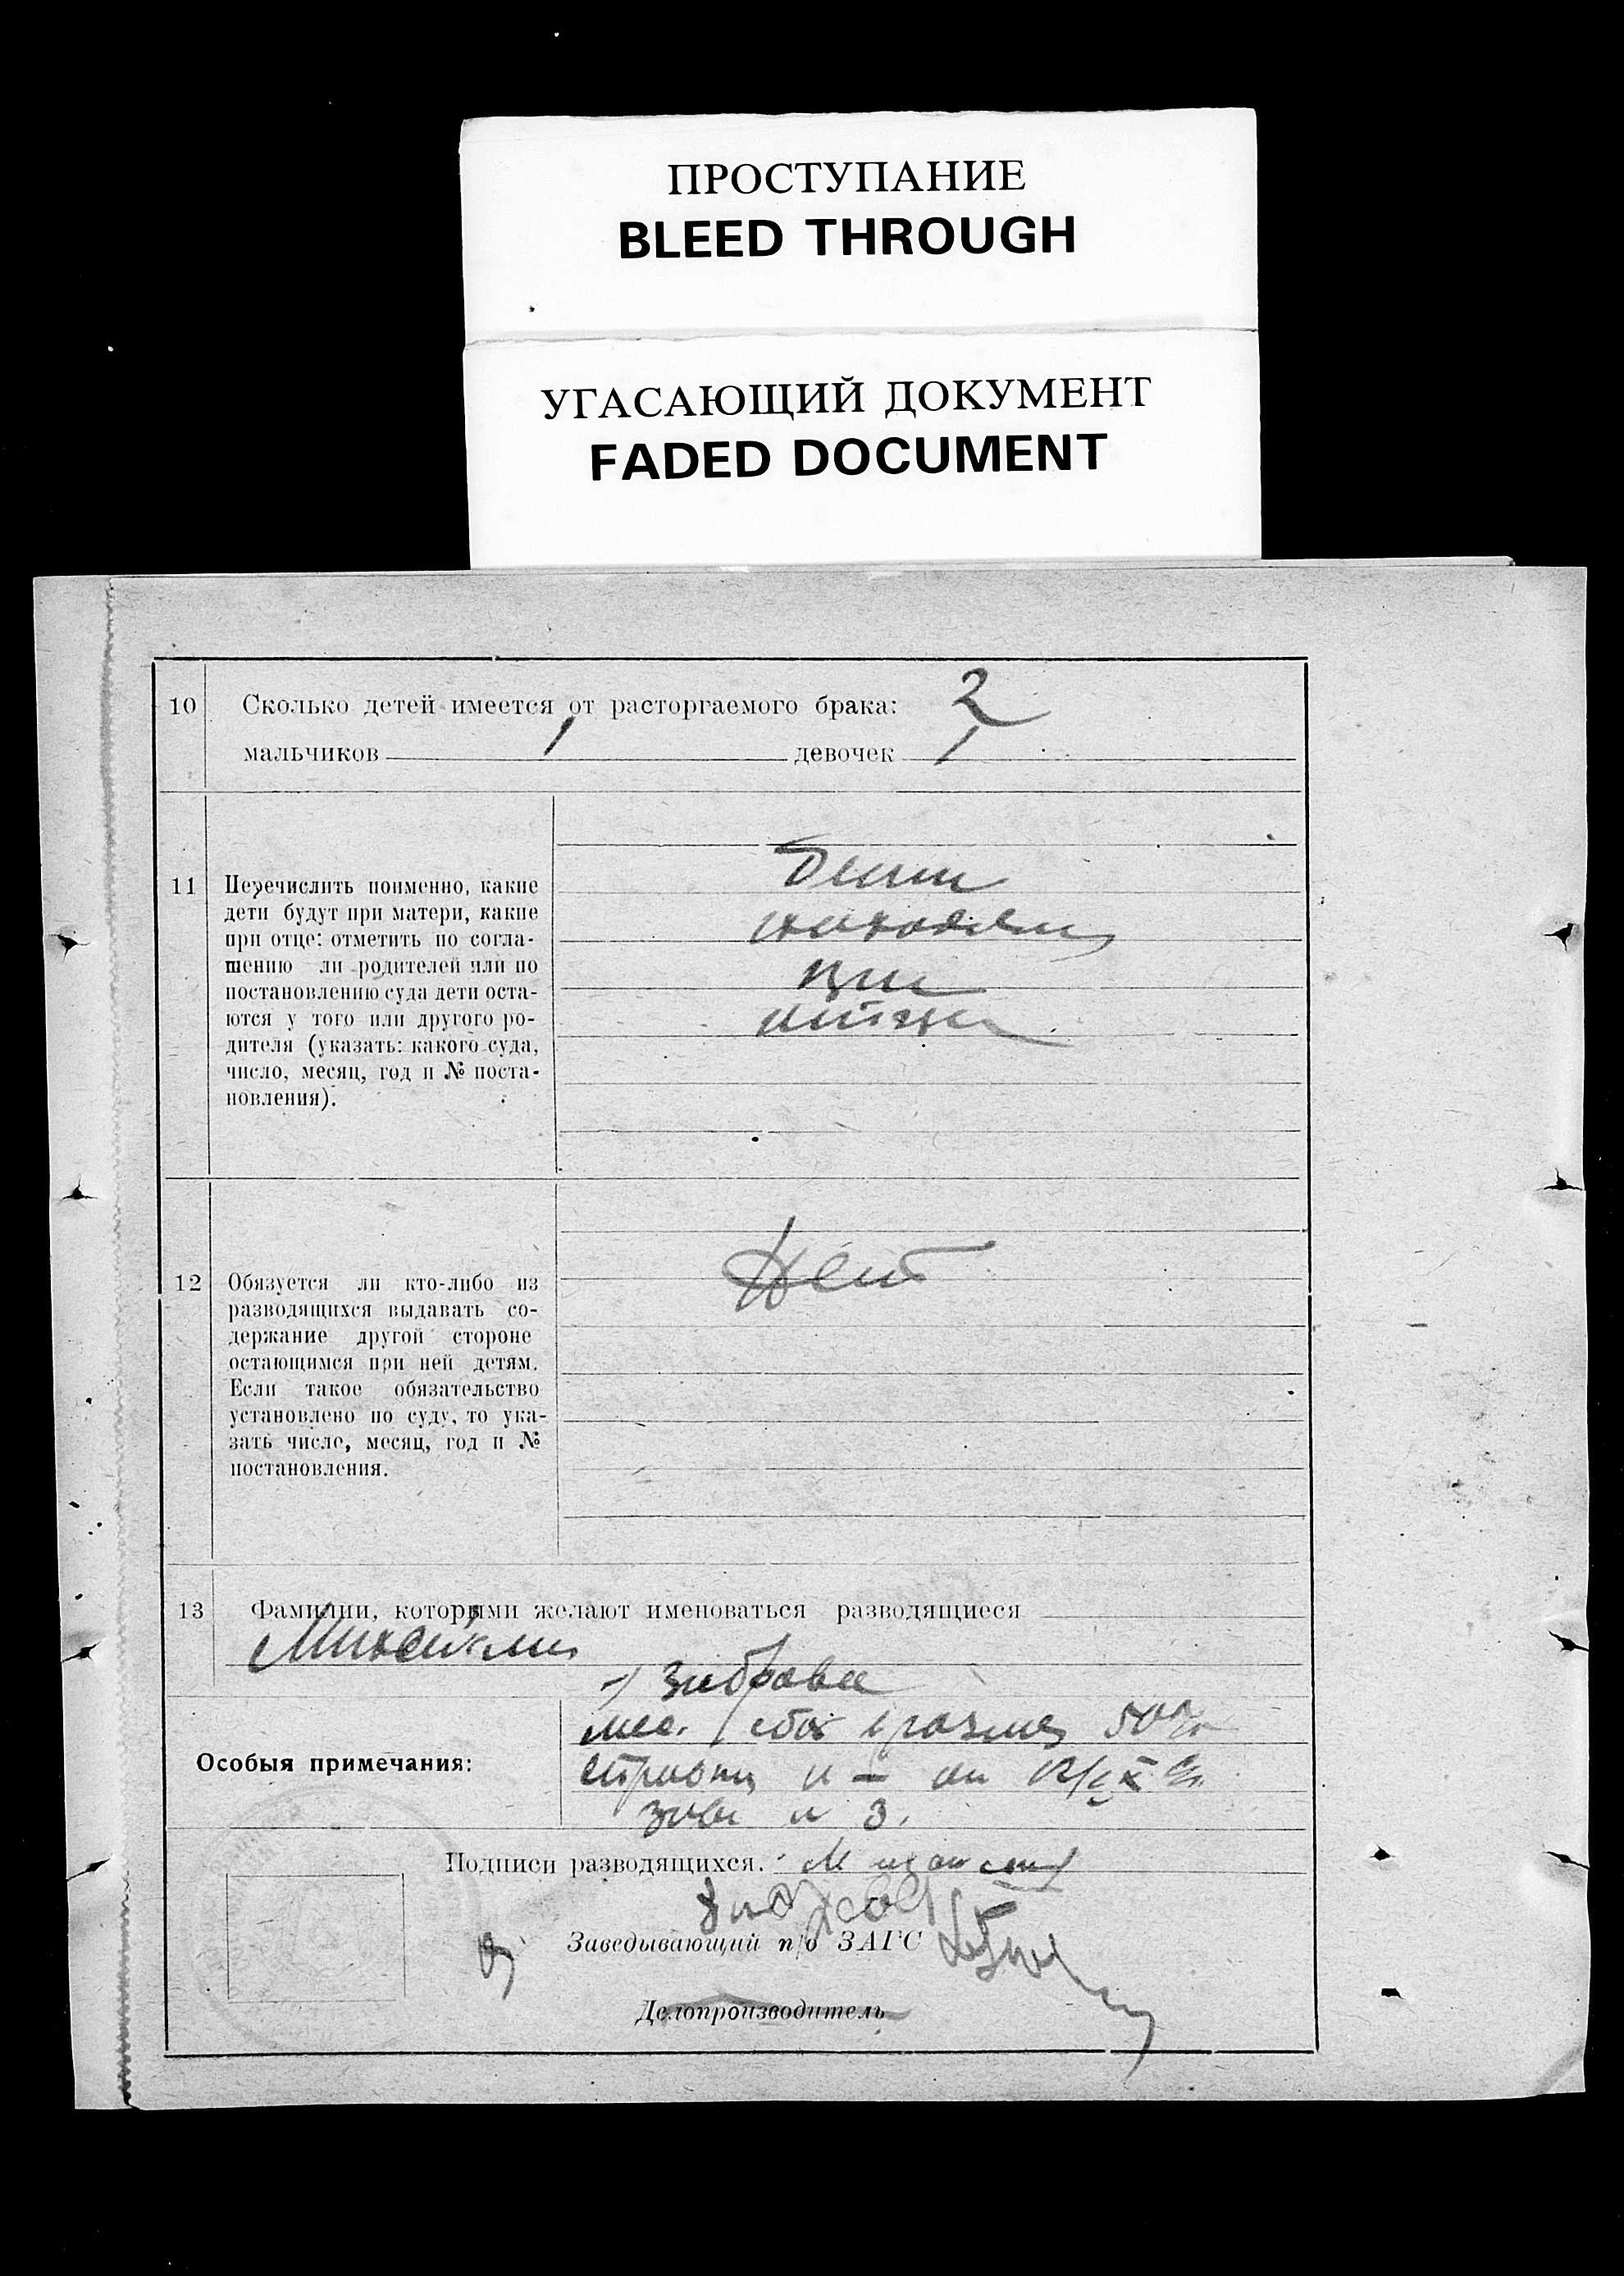 ПРОСТУПАНИЕ
BLEED THROUGH
УГАСАЮЩИЙ ДОКУМЕНТ
FADED DOCUMENT
10 Сколько детей имеется от расторгаемого брака: 2
мальчиков 1 девочек 1
11 Перечислить поименно, какие
дети будут при матери, какие
при отце: отметить по согла-
шению ли родителей или по
постановлению суда дети оста-
ются у того или другого ро-
дителя (указать: какого суда,
число, месяц, год и № поста-
новления).
Дети
находятся
при
отце
12 Обязуется ли кто-либо из
разводящихся выдавать со-
держание другой стороне
остающимся при ней детям.
Если такое обязательство
установлено по суду, то ука-
зать число, месяц, год и №
постановления.
Нет
13 Фамилии, которыми желают именоваться разводящиеся
Зиброва
Особыя примечания:
сбор 50
Подписи разводящихся.
Заведывающий п/о ЗАГС
Делопроизводитель